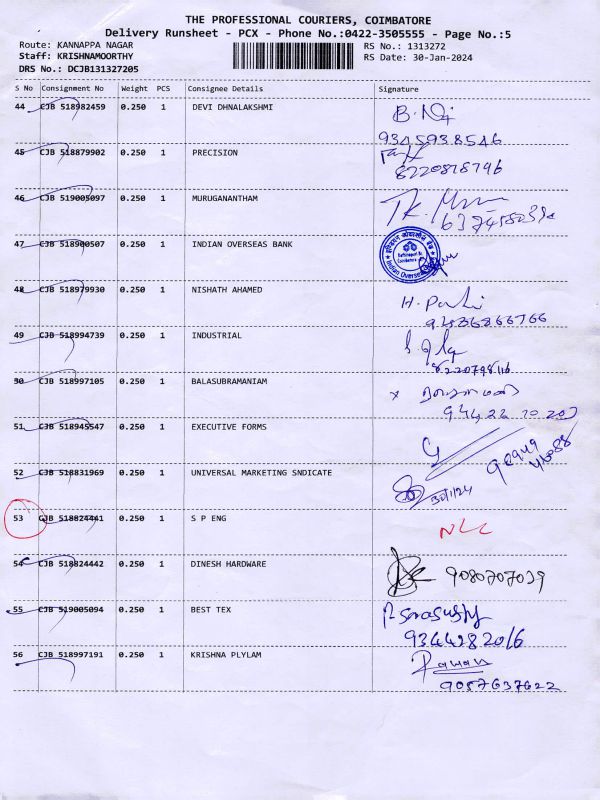 THE PROFESSIONAL COURIERS, COIMBATORE
Delivery Runsheet - PCX - Phone No.:0422-3505555 - Page No.:5
Route: KANNAPPA NAGAR RS No.: 1313272
Staff: KRISHNAMOORTHY RS Date: 30-Jan-2024
DRS No.: DCJB131327205
S No Consignment No Weight PCS Consignee Details Signature
44 CJB 518982459 0.250 1 DEVI DHNALAKSHMI
9345938546
45 CJB 518879902 0.250 1 PRECISION
8220818796
46 CJB 519005097 0.250 1 MURUGANANTHAM
47 CJB 518900507 0.250 1 INDIAN OVERSEAS BANK
48 CJB 518979930 0.250 1 NISHATH AHAMED
49 CJB 518994739 0.250 1 INDUSTRIAL
50 CJB 518997105 0.250 1 BALASUBRAMANIAM
51 CJB 518945547 0.250 1 EXECUTIVE FORMS
52 CJB 518831969 0.250 1 UNIVERSAL MARKETING SNDICATE
30/1/24
53 CJB 518824441 0.250 1 S P ENG
54 CJB 518824442 0.250 1 DINESH HARDWARE 9080707029
55 CJB 519005094 0.250 1 BEST TEX
9344282016
56 CJB 518997191 0.250 1 KRISHNA PLYLAM
9057637622